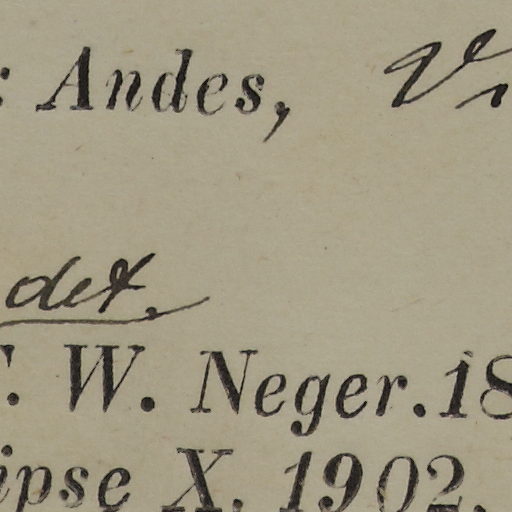 : Andes, Vi
det.
F. W. Neger. 18
ipse X. 1902.